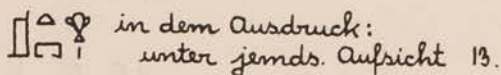 𓊨𓏏𓉐𓁷𓏤 in dem Ausdruck:
unter jemds. Aufsicht 13.